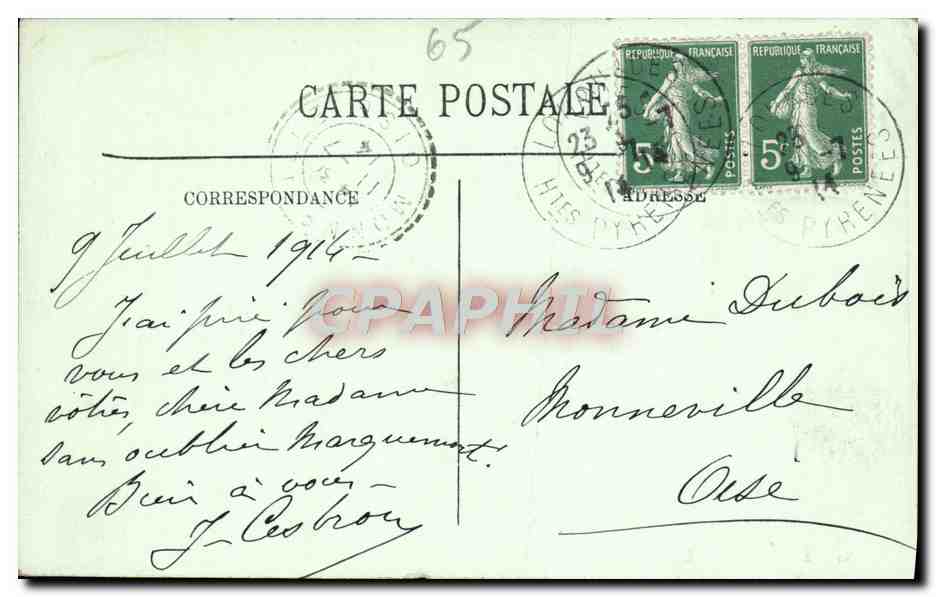 65
CARTE POSTALE
REPUBLIQUE FRANÇAISE
5c
POSTES
REPUBLIQUE FRANÇAISE
5c
POSTES
LOURDES
23
9 - 7
14
HTES PYRENEES
CORRESPONDANCE
ADRESSE
9 Juillet 1914 -
J'ai prié pour
vous et les chers
vôtres, chère Madame
sans oublier Marquemont.
Bien à vous -
J- Cesbron
Madame Dubois
Monneville
Oise
CPAPHIL